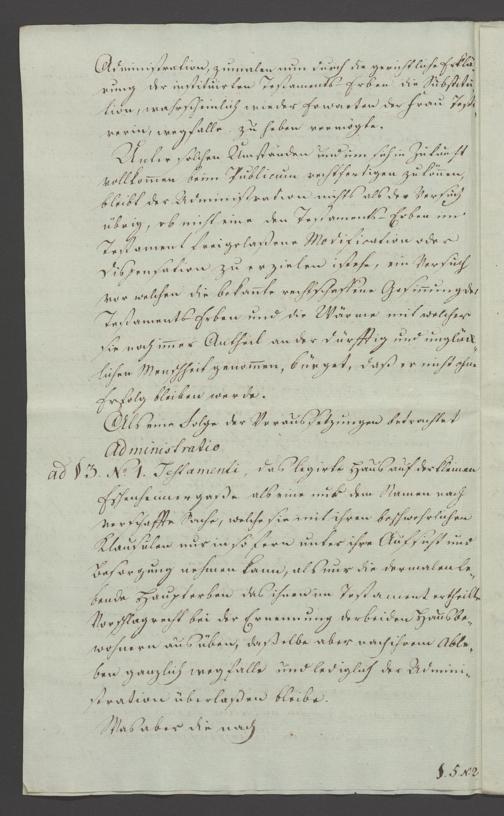 Administration, zumalen nun durch die gerichtliche Erklä-
rung der instituirten Testaments-Erben die Substitu-
tion, wahrscheinlich wieder Erwarten der Frau Testi-
rerin, wegfalle, zu heben vermögte.
Unter solchen Umständen und um sich in Zukunft
vollkommen beim Publicum rechtfertigen zu können,
bleibt der Administration nichts als der Versuch
übrig, ob nicht eine den Testaments-Erben im
Testament freigelaßene Modification oder
Dispensation zu erzielen stehe, ein Versuch
vor welchen die bekannte rechtschaffene Gesinnung der
Testaments-Erben und die Wärme mit welcher
sie noch immer Antheil an der dürfftig und unglück-
lichen Menschheit genommen, bürget, daß er nicht ohne
Erfolg bleiben werde.
Als eine Folge der Voraussetzungen betrachtet
Administratio
ad § 3. No 1. Testamenti, das legirte Haus auf der kleinen
Eschenheimergasse als eine nur dem Namen nach
verschaffte Sache, welche sie mit ihren beschwehrlichen
Klausulen nur in so fern unter ihre Aufsicht und
Besorgung nehmen kann, als nur die dermalen le-
bende Haupterben das ihnen im Testament ertheilte
Vorschlagrecht bei der Ernennung der beiden Hausbe-
wohnern ausüben, daßelbe aber nach ihrem Able-
ben gänzlich wegfalle und lediglich der Admini-
stration überlaßen bleibe.
Was aber die nach
§. 5 No 2